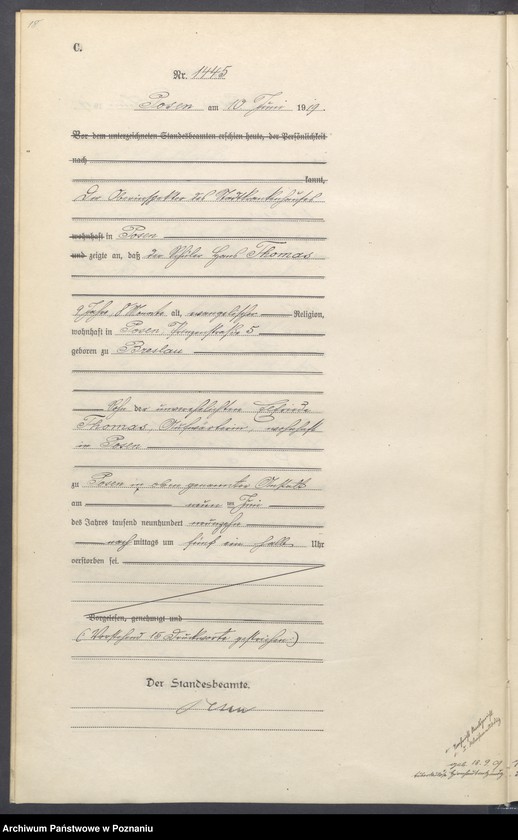 C.
Nr. 1445
Posen am 10 Juni 1919.
Vor dem unterzeichneten Standesbeamten erschien heute, der Persönlichkeit
nach
kannt,
Der Oberinspektor des Stadtkrankenhauses
wohnhaft in Posen
und zeigte an, daß der Schüler Hans Thomas
9 Jahre, 8 Monate alt, evangelischer Religion,
wohnhaft in Posen, 5
geboren zu Breslau
Sohn der unverehelichten Elfriede
Thomas, Aufwärterin, wohnhaft
in Posen
zu Posen in oben genannter Anstalt
am neun ten Juni
des Jahres tausend neunhundert neunzehn
nach mittags um fünf ein halb Uhr
verstorben sei.
Vorgelesen, genehmigt und
(Vorstehend 16 Druckworte gestrichen)
Der Standesbeamte.
Archiwum Państwowe w Poznaniu